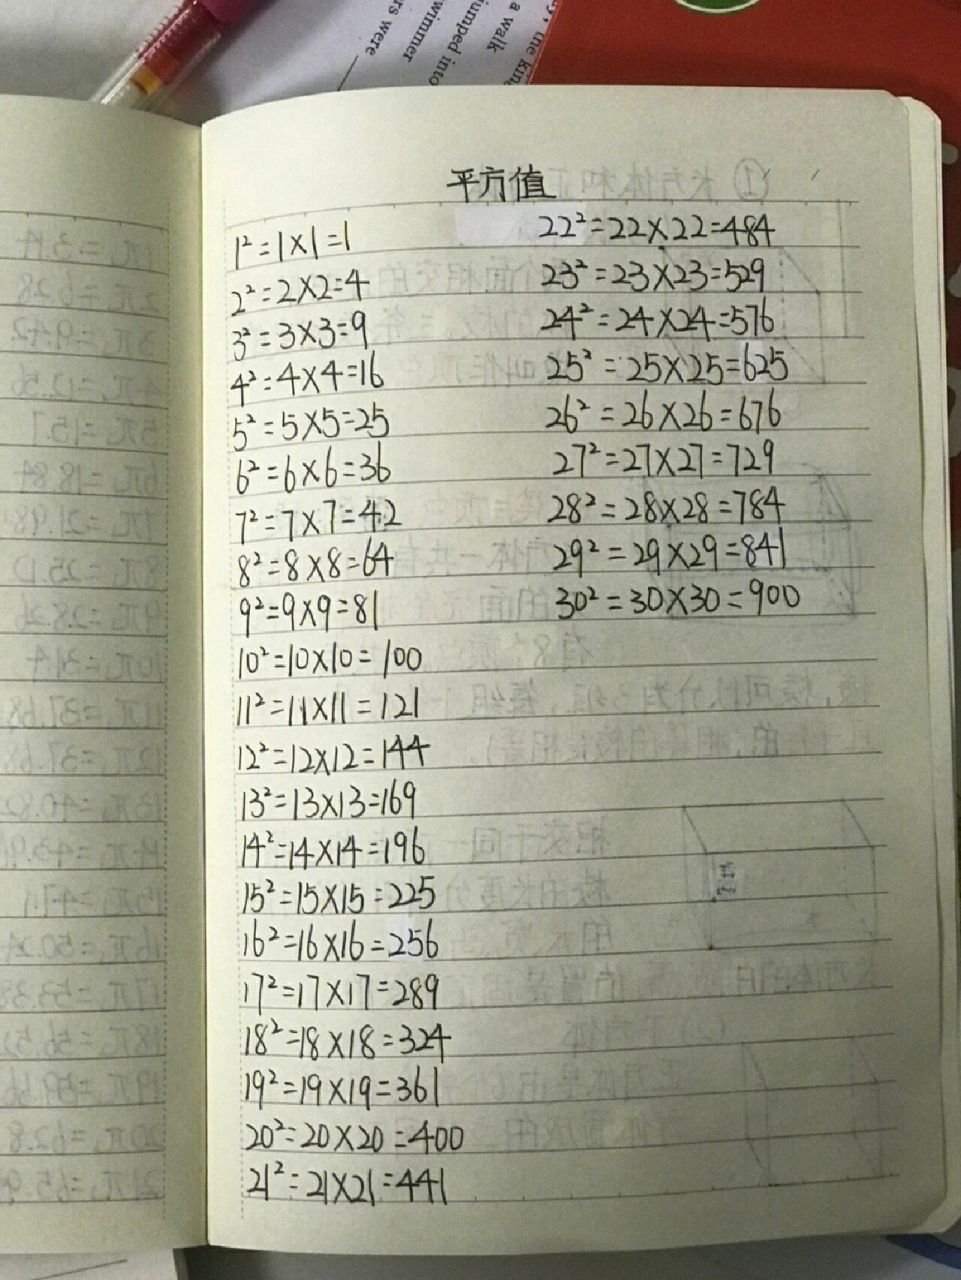 the king
a walk
jumped into
swimmer
rs were
平方值
1²=1×1=1
2²=2×2=4
3²=3×3=9
4²=4×4=16
5²=5×5=25
6²=6×6=36
7²=7×7=42
8²=8×8=64
9²=9×9=81
10²=10×10=100
11²=11×11=121
12²=12×12=144
13²=13×13=169
14²=14×14=196
15²=15×15=225
16²=16×16=256
17²=17×17=289
18²=18×18=324
19²=19×19=361
20²=20×20=400
21²=21×21=441
22²=22×22=484
23²=23×23=529
24²=24×24=576
25²=25×25=625
26²=26×26=676
27²=27×27=729
28²=28×28=784
29²=29×29=841
30²=30×30=900